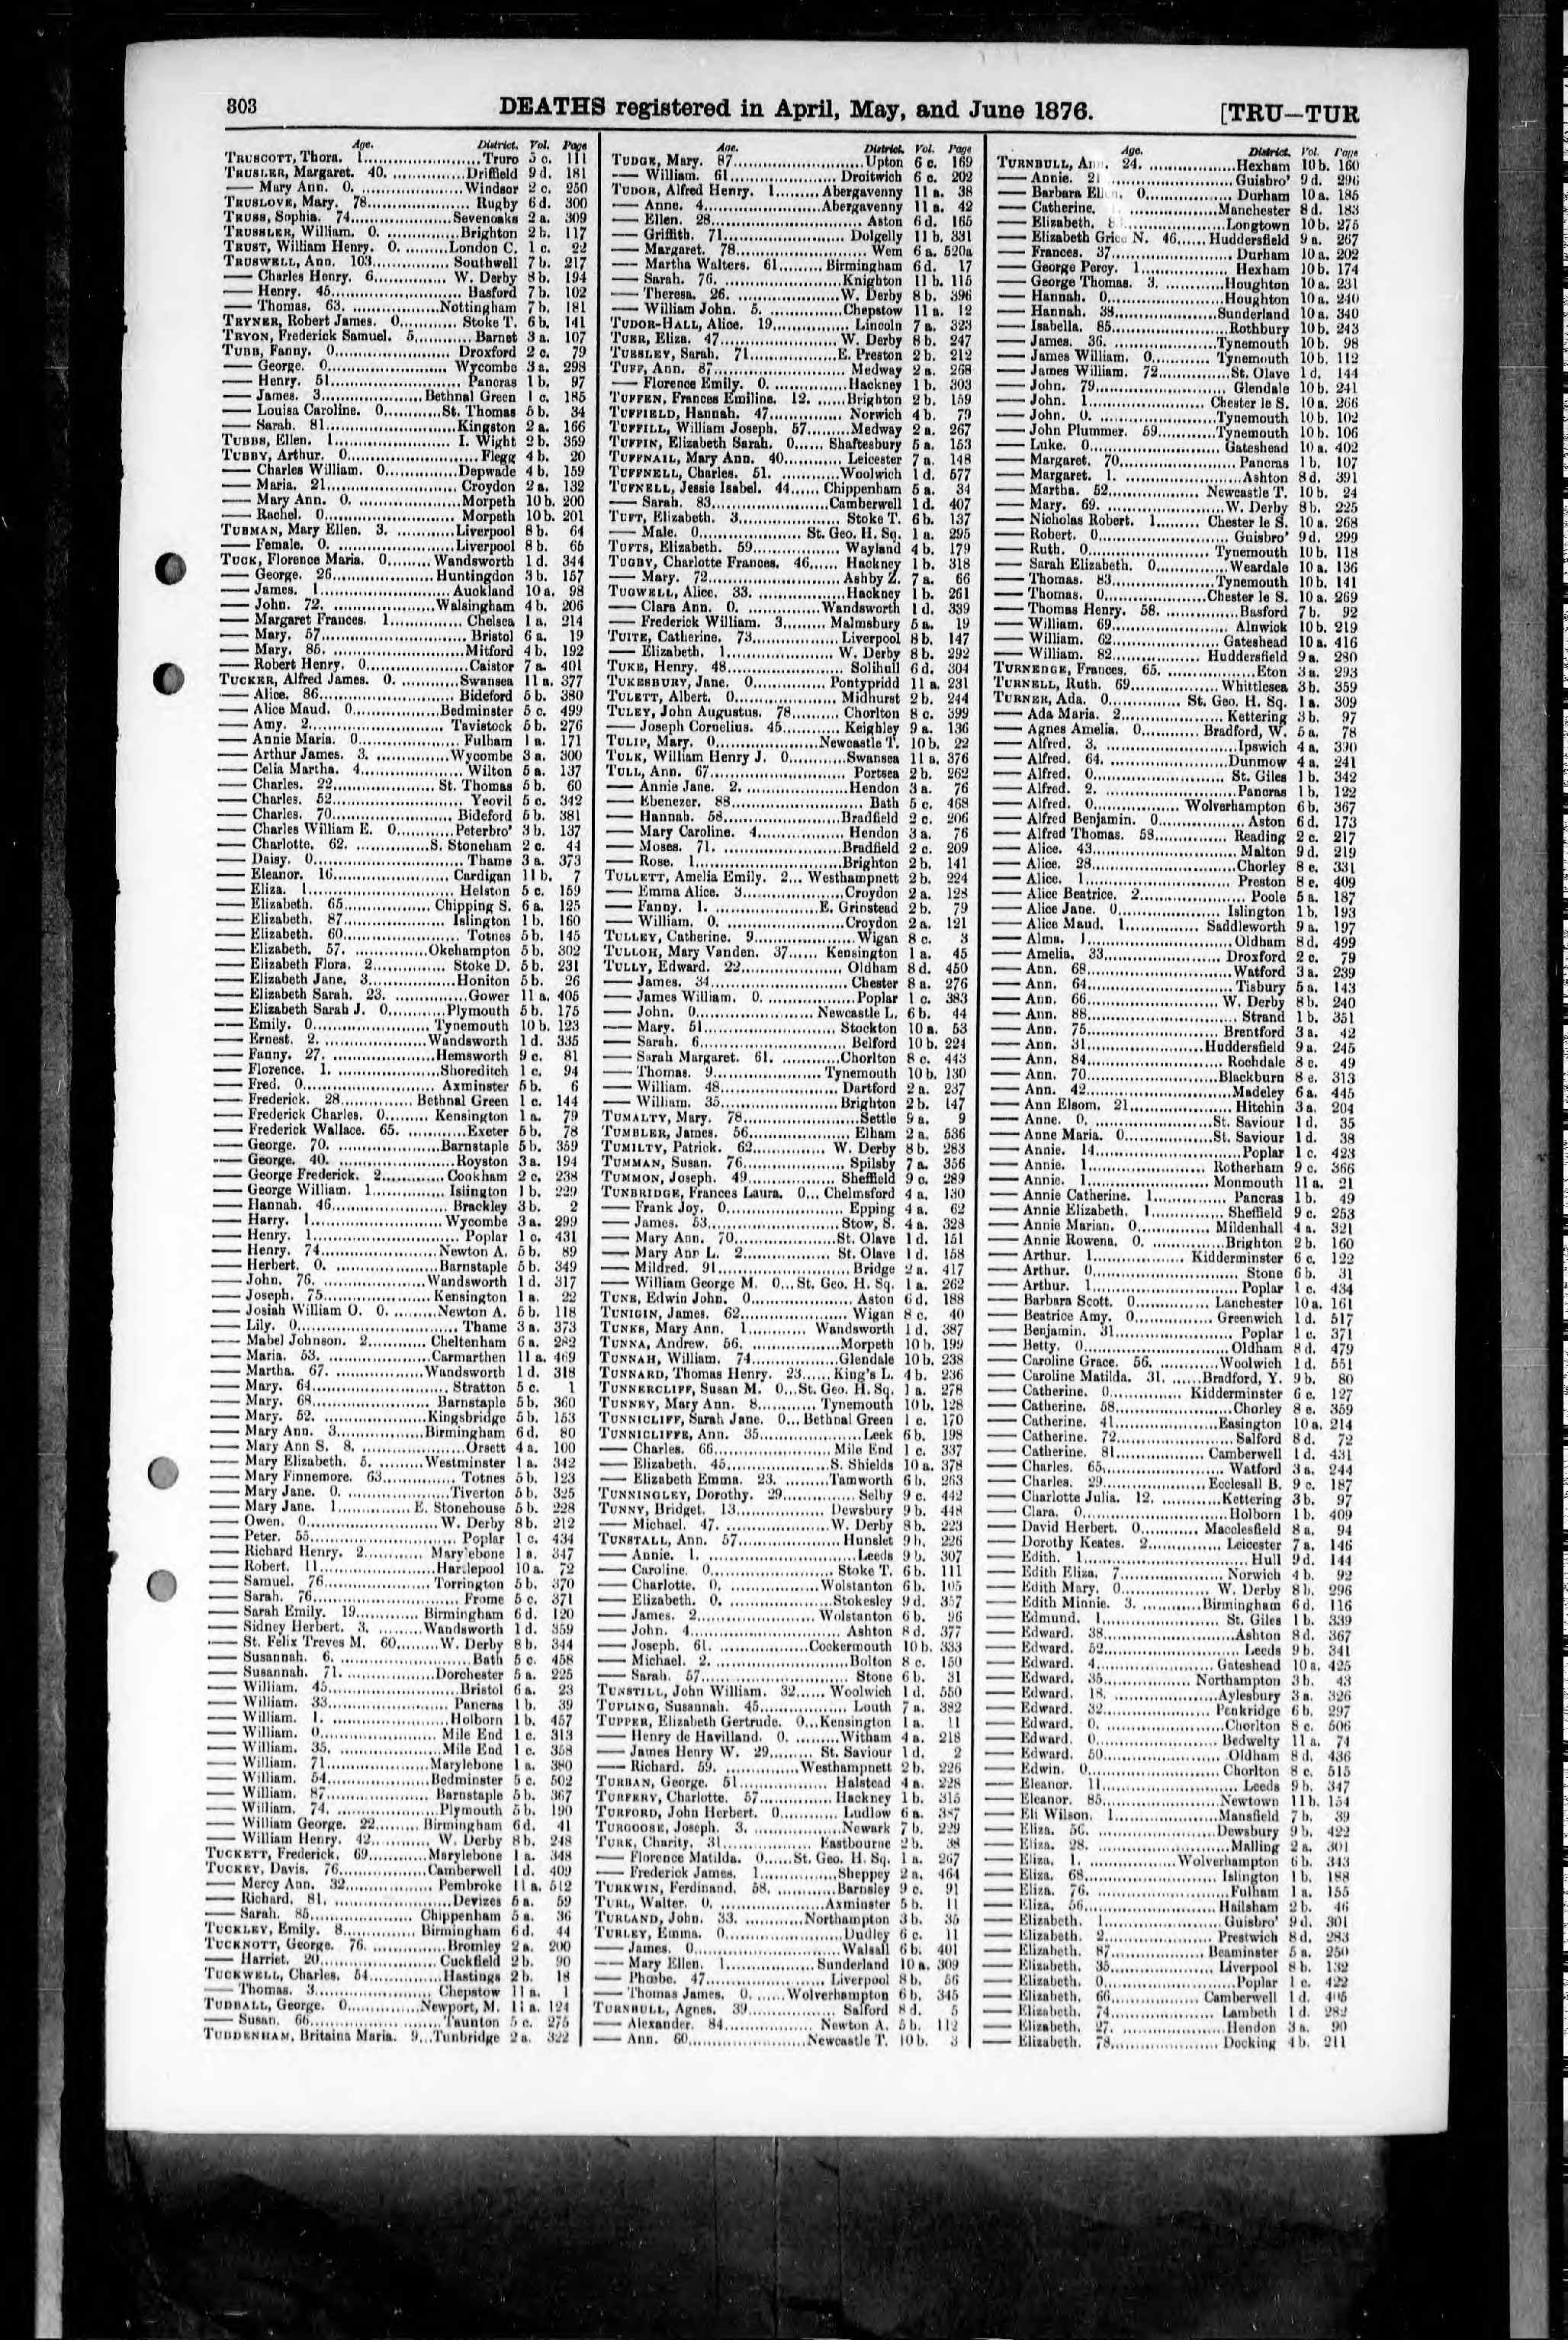 303
DEATHS registered in April, May, and June 1876.
[TRU—TUR
Age. District. Vol. Page
TRUSCOTT, Thora. 1......Truro 5 c. 111
TRUSLER, Margaret. 40. ......Driffield 9 d. 181
—— Mary Ann. 0. ......Windsor 2 c. 250
TRUSLOVE, Mary. 78......Rugby 6 d. 300
TRUSS, Sophia. 74......Sevenoaks 2 a. 309
TRUSSLER, William. 0. ......Brighton 2 b. 117
TRUST, William Henry. 0. ......London C. 1 c. 22
TRUSWELL, Ann. 103......Southwell 7 b. 217
—— Charles Henry. 6......W. Derby 8 b. 194
—— Henry. 45......Basford 7 b. 102
—— Thomas. 63. ......Nottingham 7 b. 181
TRYNER, Robert James. 0......Stoke T. 6 b. 141
TRYON, Frederick Samuel. 5......Barnet 3 a. 107
TUBB, Fanny. 0......Droxford 2 c. 79
—— George. 0......Wycombe 3 a. 298
—— Henry. 51......Pancras 1 b. 97
—— James. 3......Bethnal Green 1 c. 185
—— Louisa Caroline. 0......St. Thomas 5 b. 34
—— Sarah. 81......Kingston 2 a. 166
TUBBS, Ellen. 1......I. Wight 2 b. 359
TUBBY, Arthur. 0......Flegg 4 b. 20
—— Charles William. 0......Depwade 4 b. 159
—— Maria. 21......Croydon 2 a. 132
—— Mary Ann. 0. ......Morpeth 10 b. 200
—— Rachel. 0......Morpeth 10 b. 201
TUBMAN, Mary Ellen. 3. ......Liverpool 8 b. 64
—— Female. 0. ......Liverpool 8 b. 65
TUCK, Florence Maria. 0......Wandsworth 1 d. 344
—— George. 26......Huntingdon 3 b. 157
—— James. 1......Auckland 10 a. 98
—— John. 72. ......Walsingham 4 b. 206
—— Margaret Frances. 1......Chelsea 1 a. 214
—— Mary. 57......Bristol 6 a. 19
—— Mary. 85. ......Mitford 4 b. 192
—— Robert Henry. 0......Caistor 7 a. 401
TUCKER, Alfred James. 0. ......Swansea 11 a. 377
—— Alice. 86......Bideford 5 b. 380
—— Alice Maud. 0......Bedminster 5 c. 499
—— Amy. 2......Tavistock 5 b. 276
—— Annie Maria. 0......Fulham 1 a. 171
—— Arthur James. 3. ......Wycombe 3 a. 300
—— Celia Martha. 4......Wilton 5 a. 137
—— Charles. 22......St. Thomas 5 b. 60
—— Charles. 52......Yeovil 5 c. 342
—— Charles. 70......Bideford 5 b. 381
—— Charles William E. 0......Peterbro' 3 b. 137
—— Charlotte. 62. ......S. Stoneham 2 c. 44
—— Daisy. 0......Thame 3 a. 373
—— Eleanor. 16......Cardigan 11 b. 7
—— Eliza. 1......Helston 5 c. 159
—— Elizabeth. 65......Chipping S. 6 a. 125
—— Elizabeth. 87......Islington 1 b. 160
—— Elizabeth. 60......Totnes 5 b. 145
—— Elizabeth. 57. ......Okehampton 5 b. 302
—— Elizabeth Flora. 2......Stoke D. 5 b. 231
—— Elizabeth Jane. 3......Honiton 5 b. 26
—— Elizabeth Sarah. 23. ......Gower 11 a. 405
—— Elizabeth Sarah J. 0......Plymouth 5 b. 175
—— Emily. 0......Tynemouth 10 b. 123
—— Ernest. 2......Wandsworth 1 d. 335
—— Fanny. 27. ......Hemsworth 9 c. 81
—— Florence. 1. ......Shoreditch 1 c. 94
—— Fred. 0......Axminster 5 b. 6
—— Frederick. 28......Bethnal Green 1 c. 144
—— Frederick Charles. 0......Kensington 1 a. 79
—— Frederick Wallace. 65. ......Exeter 5 b. 78
—— George. 70. ......Barnstaple 5 b. 359
—— George. 40. ......Royston 3 a. 194
—— George Frederick. 2......Cookham 2 c. 238
—— George William. 1......Islington 1 b. 229
—— Hannah. 46......Brackley 3 b. 2
—— Harry. 1......Wycombe 3 a. 299
—— Henry. 1......Poplar 1 c. 431
—— Henry. 74......Newton A. 5 b. 89
—— Herbert. 0. ......Barnstaple 5 b. 349
—— John. 76. ......Wandsworth 1 d. 317
—— Joseph. 75......Kensington 1 a. 22
—— Josiah William O. 0. ......Newton A. 5 b. 118
—— Lily. 0......Thame 3 a. 373
—— Mabel Johnson. 2......Cheltenham 6 a. 282
—— Maria. 53. ......Carmarthen 11 a. 469
—— Martha. 67. ......Wandsworth 1 d. 318
—— Mary. 64......Stratton 5 c. 1
—— Mary. 68......Barnstaple 5 b. 360
—— Mary. 52. ......Kingsbridge 5 b. 153
—— Mary Ann. 3......Birmingham 6 d. 80
—— Mary Ann S. 8. ......Orsett 4 a. 100
—— Mary Elizabeth. 5. ......Westminster 1 a. 342
—— Mary Finnemore. 63......Totnes 5 b. 123
—— Mary Jane. 0. ......Tiverton 5 b. 325
—— Mary Jane. 1......E. Stonehouse 5 b. 228
—— Owen. 0......W. Derby 8 b. 212
—— Peter. 55......Poplar 1 c. 434
—— Richard Henry. 2......Marylebone 1 a. 347
—— Robert. 11......Hartlepool 10 a. 72
—— Samuel. 76......Torrington 5 b. 370
—— Sarah. 76......Frome 5 c. 371
—— Sarah Emily. 19......Birmingham 6 d. 120
—— Sidney Herbert. 3. ......Wandsworth 1 d. 359
—— St. Felix Treves M. 60......W. Derby 8 b. 344
—— Susannah. 6. ......Bath 5 c. 458
—— Susannah. 71. ......Dorchester 5 a. 225
—— William. 45......Bristol 6 a. 23
—— William. 33......Pancras 1 b. 39
—— William. 1. ......Holborn 1 b. 457
—— William. 0......Mile End 1 c. 313
—— William. 35. ......Mile End 1 c. 358
—— William. 71......Marylebone 1 a. 380
—— William. 54......Bedminster 5 c. 502
—— William. 87......Barnstaple 5 b. 367
—— William. 74. ......Plymouth 5 b. 190
—— William George. 22......Birmingham 6 d. 41
—— William Henry. 42......W. Derby 8 b. 248
TUCKETT, Frederick. 69......Marylebone 1 a. 348
TUCKEY, Davis. 76......Camberwell 1 d. 409
—— Mercy Ann. 32......Pembroke 11 a. 512
—— Richard. 81. ......Devizes 5 a. 59
—— Sarah. 85......Chippenham 5 a. 36
TUCKLEY, Emily. 8......Birmingham 6 d. 44
TUCKNOTT, George. 76. ......Bromley 2 a. 200
—— Harriet. 20......Cuckfield 2 b. 90
TUCKWELL, Charles. 54......Hastings 2 b. 18
—— Thomas. 3......Chepstow 11 a. 1
TUDBALL, George. 0......Newport, M. 11 a. 124
—— Susan. 66......Taunton 5 c. 275
TUDDENHAM, Britaina Maria. 9...Tunbridge 2 a. 322
Age. District. Vol. Page
TUDGE, Mary. 87......Upton 6 c. 169
—— William. 61......Droitwich 6 c. 202
TUDOR, Alfred Henry. 1......Abergavenny 11 a. 38
—— Anne. 4......Abergavenny 11 a. 42
—— Ellen. 28......Aston 6 d. 165
—— Griffith. 71......Dolgelly 11 b. 331
—— Margaret. 78......Wem 6 a. 520a
—— Martha Walters. 61......Birmingham 6 d. 17
—— Sarah. 76. ......Knighton 11 b. 115
—— Theresa. 26. ......W. Derby 8 b. 396
—— William John. 5. ......Chepstow 11 a. 12
TUDOR-HALL, Alice. 19......Lincoln 7 a. 323
TUER, Eliza. 47......W. Derby 8 b. 247
TUESLEY, Sarah. 71......E. Preston 2 b. 212
TUFF, Ann. 87......Medway 2 a. 268
—— Florence Emily. 0. ......Hackney 1 b. 303
TUFFEN, Frances Emiline. 12. ......Brighton 2 b. 159
TUFFIELD, Hannah. 47......Norwich 4 b. 79
TUFFILL, William Joseph. 57......Medway 2 a. 267
TUFFIN, Elizabeth Sarah. 0......Shaftesbury 5 a. 153
TUFFNAIL, Mary Ann. 40......Leicester 7 a. 148
TUFFNELL, Charles. 51. ......Woolwich 1 d. 577
TUFNELL, Jessie Isabel. 44......Chippenham 5 a. 34
—— Sarah. 83......Camberwell 1 d. 407
TUFT, Elizabeth. 3......Stoke T. 6 b. 137
—— Male. 0......St. Geo. H. Sq. 1 a. 295
TUFTS, Elizabeth. 59......Wayland 4 b. 179
TUGBY, Charlotte Frances. 46......Hackney 1 b. 318
—— Mary. 72......Ashby Z. 7 a. 66
TUGWELL, Alice. 33. ......Hackney 1 b. 261
—— Clara Ann. 0. ......Wandsworth 1 d. 339
—— Frederick William. 3......Malmsbury 5 a. 19
TUITE, Catherine. 73......Liverpool 8 b. 147
—— Elizabeth. 1......W. Derby 8 b. 292
TUKE, Henry. 48......Solihull 6 d. 304
TUKESBURY, Jane. 0......Pontypridd 11 a. 231
TULETT, Albert. 0......Midhurst 2 b. 244
TULEY, John Augustus. 78......Chorlton 8 c. 399
—— Joseph Cornelius. 45......Keighley 9 a. 136
TULIP, Mary. 0......Newcastle T. 10 b. 22
TULK, William Henry J. 0......Swansea 11 a. 376
TULL, Ann. 67......Portsea 2 b. 262
—— Annie Jane. 2. ......Hendon 3 a. 76
—— Ebenezer. 88......Bath 5 c. 468
—— Hannah. 58......Bradfield 2 c. 206
—— Mary Caroline. 4......Hendon 3 a. 76
—— Moses. 71. ......Bradfield 2 c. 209
—— Rose. 1......Brighton 2 b. 141
TULLETT, Amelia Emily. 2... Westhampnett 2 b. 224
—— Emma Alice. 3......Croydon 2 a. 128
—— Fanny. 1. ......E. Grinstead 2 b. 79
—— William. 0. ......Croydon 2 a. 121
TULLEY, Catherine. 9......Wigan 8 c. 3
TULLOH, Mary Vanden. 37......Kensington 1 a. 45
TULLY, Edward. 22......Oldham 8 d. 450
—— James. 34......Chester 8 a. 276
—— James William. 0. ......Poplar 1 c. 383
—— John. 0......Newcastle L. 6 b. 44
—— Mary. 51......Stockton 10 a. 53
—— Sarah. 6......Belford 10 b. 224
—— Sarah Margaret. 61. ......Chorlton 8 c. 443
—— Thomas. 9......Tynemouth 10 b. 130
—— William. 48......Dartford 2 a. 237
—— William. 35......Brighton 2 b. 147
TUMALTY, Mary. 78......Settle 9 a. 9
TUMBLER, James. 56......Elham 2 a. 536
TUMILTY, Patrick. 62......W. Derby 8 b. 283
TUMMAN, Susan. 76......Spilsby 7 a. 356
TUMMON, Joseph. 49......Sheffield 9 c. 289
TUNBRIDGE, Frances Laura. 0... Chelmsford 4 a. 130
—— Frank Joy. 0......Epping 4 a. 62
—— James. 53......Stow, S. 4 a. 328
—— Mary Ann. 70......St. Olave 1 d. 151
—— Mary Ann L. 2......St. Olave 1 d. 158
—— Mildred. 91......Bridge 2 a. 417
—— William George M. 0...St. Geo. H. Sq. 1 a. 262
TUNE, Edwin John. 0......Aston 6 d. 188
TUNIGIN, James. 62......Wigan 8 c. 40
TUNKS, Mary Ann. 1......Wandsworth 1 d. 387
TUNNA, Andrew. 56. ......Morpeth 10 b. 199
TUNNAH, William. 74......Glendale 10 b. 238
TUNNARD, Thomas Henry. 23......King's L. 4 b. 236
TUNNERCLIFF, Susan M. 0...St. Geo. H. Sq. 1 a. 278
TUNNEY, Mary Ann. 8......Tynemouth 10 b. 128
TUNNICLIFF, Sarah Jane. 0... Bethnal Green 1 c. 170
TUNNICLIFFE, Ann. 35......Leek 6 b. 198
—— Charles. 66......Mile End 1 c. 337
—— Elizabeth. 45......S. Shields 10 a. 378
—— Elizabeth Emma. 23. ......Tamworth 6 b. 263
TUNNINGLEY, Dorothy. 29......Selby 9 c. 442
TUNNY, Bridget. 13......Dewsbury 9 b. 448
—— Michael. 47. ......W. Derby 8 b. 223
TUNSTALL, Ann. 57......Hunslet 9 b. 226
—— Annie. 1. ......Leeds 9 b. 307
—— Caroline. 0......Stoke T. 6 b. 111
—— Charlotte. 0. ......Wolstanton 6 b. 105
—— Elizabeth. 0. ......Stokesley 9 d. 357
—— James. 2......Wolstanton 6 b. 96
—— John. 4......Ashton 8 d. 377
—— Joseph. 61. ......Cockermouth 10 b. 333
—— Michael. 2. ......Bolton 8 c. 150
—— Sarah. 57......Stone 6 b. 31
TUNSTILL, John William. 32......Woolwich 1 d. 550
TUPLING, Susannah. 45......Louth 7 a. 382
TUPPER, Elizabeth Gertrude. 0...Kensington 1 a. 11
—— Henry de Havilland. 0. ......Witham 4 a. 218
—— James Henry W. 29......St. Saviour 1 d. 2
—— Richard. 59. ......Westhampnett 2 b. 226
TURBAN, George. 51......Halstead 4 a. 228
TURFERY, Charlotte. 57......Hackney 1 b. 315
TURFORD, John Herbert. 0......Ludlow 6 a. 387
TURGOOSE, Joseph. 3. ......Newark 7 b. 229
TURK, Charity. 31......Eastbourne 2 b. 38
—— Florence Matilda. 0......St. Geo. H. Sq. 1 a. 267
—— Frederick James. 1......Sheppey 2 a. 464
TURKWIN, Ferdinand. 58. ......Barnsley 9 c. 91
TURL, Walter. 0. ......Axminster 5 b. 11
TURLAND, John. 33. ......Northampton 3 b. 35
TURLEY, Emma. 0......Dudley 6 c. 11
—— James. 0......Walsall 6 b. 401
—— Mary Ellen. 1......Sunderland 10 a. 309
—— Phœbe. 47......Liverpool 8 b. 56
—— Thomas James. 0. ......Wolverhampton 6 b. 345
TURNBULL, Agnes. 39......Salford 8 d. 5
—— Alexander. 84......Newton A. 5 b. 112
—— Ann. 60......Newcastle T. 10 b. 3
Age. District. Vol. Page
TURNBULL, 24. ......Hexham 10 b. 160
—— Annie. ......Guisbro' 9 d. 296
—— Barbara 0......Durham 10 a. 185
—— Catherine. ......Manchester 8 d. 183
—— Elizabeth. ......Longtown 10 b. 275
—— Elizabeth Grice N. 46......Huddersfield 9 a. 267
—— Frances. 37......Durham 10 a. 202
—— George Percy. 1......Hexham 10 b. 174
—— George Thomas. 3. ......Houghton 10 a. 231
—— Hannah. 0......Houghton 10 a. 240
—— Hannah. 38......Sunderland 10 a. 340
—— Isabella. 85......Rothbury 10 b. 243
—— James. 36. ......Tynemouth 10 b. 98
—— James William. 0......Tynemouth 10 b. 112
—— James William. 72......St. Olave 1 d. 144
—— John. 79......Glendale 10 b. 241
—— John. 1......Chester le S. 10 a. 266
—— John. 0......Tynemouth 10 b. 102
—— John Plummer. 59......Tynemouth 10 b. 106
—— Luke. 0......Gateshead 10 a. 402
—— Margaret. 70......Pancras 1 b. 107
—— Margaret. 1. ......Ashton 8 d. 391
—— Martha. 52......Newcastle T. 10 b. 24
—— Mary. 69. ......W. Derby 8 b. 225
—— Nicholas Robert. 1......Chester le S. 10 a. 268
—— Robert. 0......Guisbro' 9 d. 299
—— Ruth. 0......Tynemouth 10 b. 118
—— Sarah Elizabeth. 0......Weardale 10 a. 136
—— Thomas. 83......Tynemouth 10 b. 141
—— Thomas. 0......Chester le S. 10 a. 269
—— Thomas Henry. 58. ......Basford 7 b. 92
—— William. 69......Alnwick 10 b. 219
—— William. 62......Gateshead 10 a. 416
—— William. 82......Huddersfield 9 a. 280
TURNEDGE, Frances. 65. ......Eton 3 a. 293
TURNELL, Ruth. 69......Whittlesea 3 b. 359
TURNER, Ada. 0......St. Geo. H. Sq. 1 a. 309
—— Ada Maria. 2......Kettering 3 b. 97
—— Agnes Amelia. 0......Bradford, W. 5 a. 78
—— Alfred. 3. ......Ipswich 4 a. 390
—— Alfred. 64. ......Dunmow 4 a. 241
—— Alfred. 0......St. Giles 1 b. 342
—— Alfred. 2. ......Pancras 1 b. 122
—— Alfred. 0......Wolverhampton 6 b. 367
—— Alfred Benjamin. 0......Aston 6 d. 173
—— Alfred Thomas. 58......Reading 2 c. 217
—— Alice. 43......Malton 9 d. 219
—— Alice. 28......Chorley 8 e. 331
—— Alice. 1......Preston 8 e. 409
—— Alice Beatrice. 2......Poole 5 a. 187
—— Alice Jane. 0......Islington 1 b. 193
—— Alice Maud. 1......Saddleworth 9 a. 197
—— Alma. 1......Oldham 8 d. 499
—— Amelia. 33......Droxford 2 c. 79
—— Ann. 68......Watford 3 a. 239
—— Ann. 64......Tisbury 5 a. 143
—— Ann. 66......W. Derby 8 b. 240
—— Ann. 88......Strand 1 b. 351
—— Ann. 75......Brentford 3 a. 42
—— Ann. 31......Huddersfield 9 a. 245
—— Ann. 84......Rochdale 8 e. 49
—— Ann. 70......Blackburn 8 e. 313
—— Ann. 42......Madeley 6 a. 445
—— Ann Elsom. 21......Hitchin 3 a. 204
—— Anne. 0. ......St. Saviour 1 d. 35
—— Anne Maria. 0......St. Saviour 1 d. 38
—— Annie. 14......Poplar 1 c. 423
—— Annie. 1......Rotherham 9 c. 366
—— Annie. 1......Monmouth 11 a. 21
—— Annie Catherine. 1......Pancras 1 b. 49
—— Annie Elizabeth. 1......Sheffield 9 c. 253
—— Annie Marian. 0......Mildenhall 4 a. 321
—— Annie Rowena. 0. ......Brighton 2 b. 160
—— Arthur. 1......Kidderminster 6 c. 122
—— Arthur. 0......Stone 6 b. 31
—— Arthur. 1......Poplar 1 c. 434
—— Barbara Scott. 0......Lanchester 10 a. 161
—— Beatrice Amy. 0......Greenwich 1 d. 517
—— Benjamin. 31......Poplar 1 c. 371
—— Betty. 0......Oldham 8 d. 479
—— Caroline Grace. 56. ......Woolwich 1 d. 551
—— Caroline Matilda. 31. ......Bradford, Y. 9 b. 80
—— Catherine. 0......Kidderminster 6 c. 127
—— Catherine. 58......Chorley 8 e. 359
—— Catherine. 41......Easington 10 a. 214
—— Catherine. 72......Salford 8 d. 72
—— Catherine. 81......Camberwell 1 d. 431
—— Charles. 65......Watford 3 a. 244
—— Charles. 29......Ecclesall B. 9 c. 187
—— Charlotte Julia. 12. ......Kettering 3 b. 97
—— Clara. 0......Holborn 1 b. 409
—— David Herbert. 0......Macclesfield 8 a. 94
—— Dorothy Keates. 2......Leicester 7 a. 146
—— Edith. 1......Hull 9 d. 144
—— Edith Eliza. 7......Norwich 4 b. 92
—— Edith Mary. 0......W. Derby 8 b. 296
—— Edith Minnie. 3. ......Birmingham 6 d. 116
—— Edmund. 1......St. Giles 1 b. 339
—— Edward. 38......Ashton 8 d. 367
—— Edward. 52......Leeds 9 b. 341
—— Edward. 4......Gateshead 10 a. 425
—— Edward. 35......Northampton 3 b. 43
—— Edward. 18. ......Aylesbury 3 a. 326
—— Edward. 32......Penkridge 6 b. 297
—— Edward. 0. ......Chorlton 8 c. 506
—— Edward. 0......Bedwelty 11 a. 74
—— Edward. 50......Oldham 8 d. 436
—— Edwin. 0......Chorlton 8 c. 515
—— Eleanor. 11......Leeds 9 b. 347
—— Eleanor. 85......Newtown 11 b. 154
—— Eli Wilson. 1......Mansfield 7 b. 39
—— Eliza. 56. ......Dewsbury 9 b. 422
—— Eliza. 28. ......Malling 2 a. 301
—— Eliza. 1. ......Wolverhampton 6 b. 343
—— Eliza. 68......Islington 1 b. 188
—— Eliza. 76. ......Fulham 1 a. 155
—— Eliza. 56......Hailsham 2 b. 46
—— Elizabeth. 1......Guisbro' 9 d. 301
—— Elizabeth. 2......Prestwich 8 d. 283
—— Elizabeth. 87......Beaminster 5 a. 250
—— Elizabeth. 35......Liverpool 8 b. 132
—— Elizabeth. 0......Poplar 1 c. 422
—— Elizabeth. 66......Camberwell 1 d. 405
—— Elizabeth. 74......Lambeth 1 d. 282
—— Elizabeth. 27. ......Hendon 3 a. 90
—— Elizabeth. 78......Docking 4 b. 211